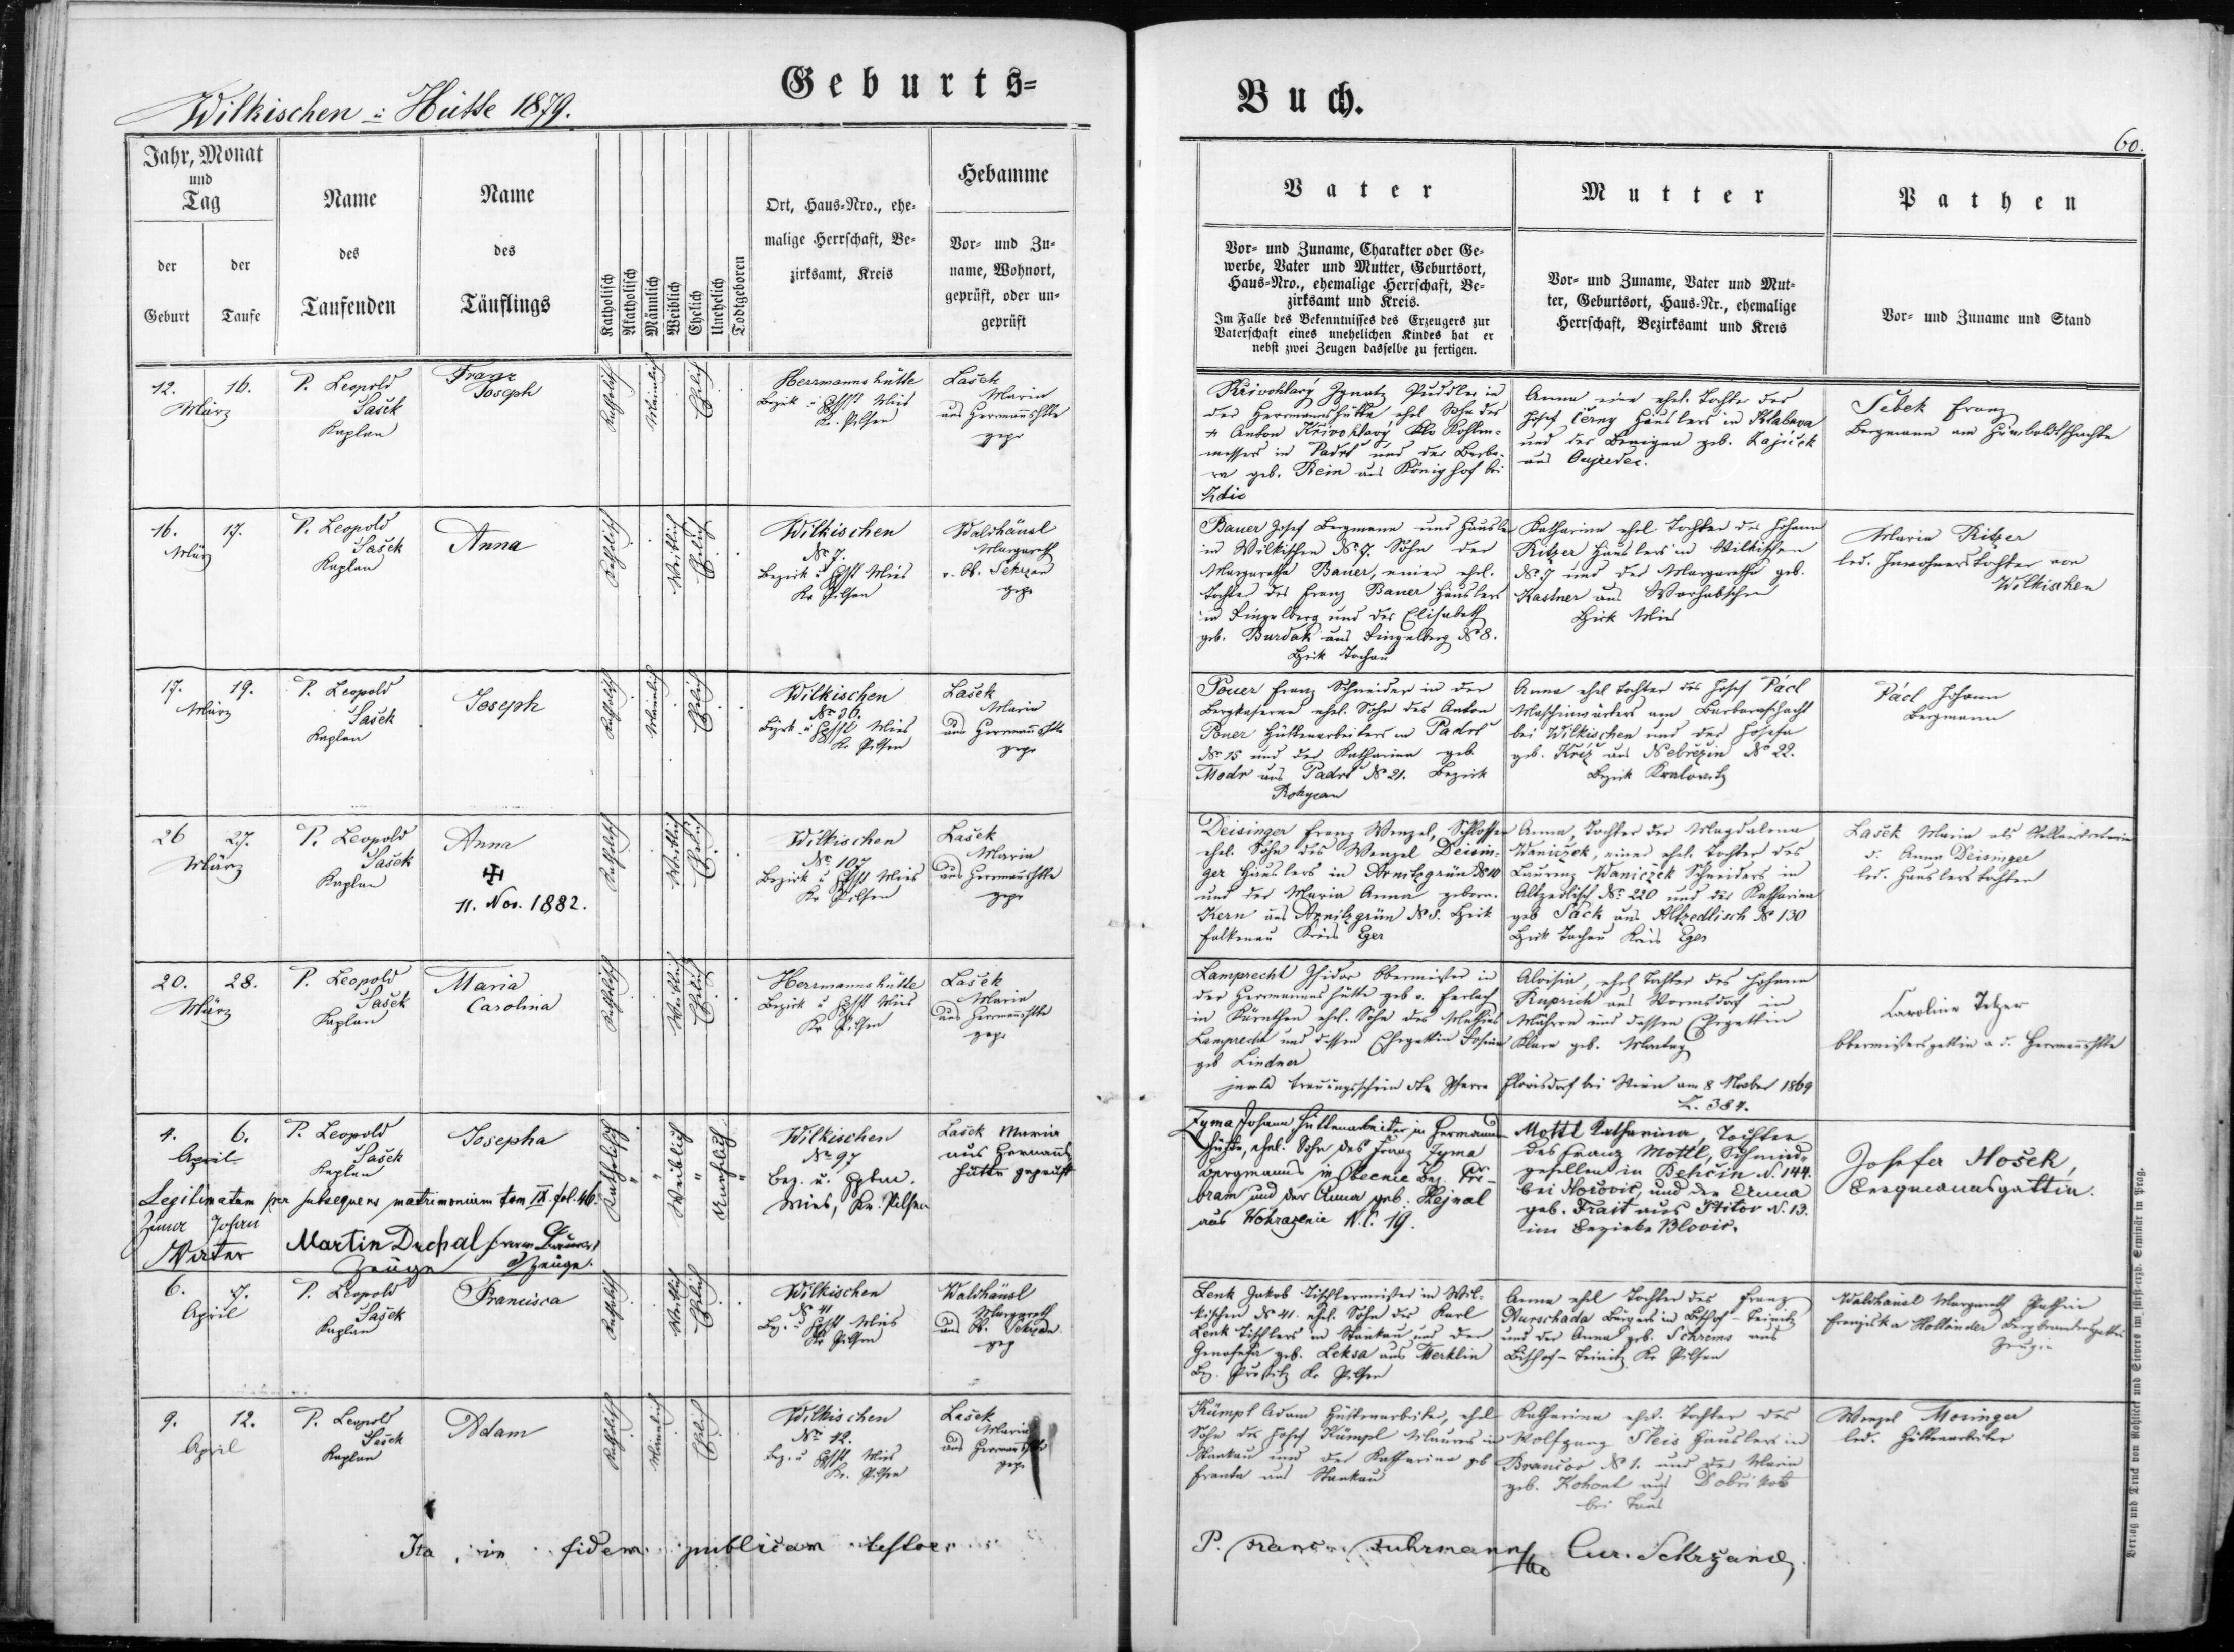 Geburts=
Buch.
Wilkischen u Hütte 1879.
60.
Jahr, Monat
und
Tag
der
Geburt
der
Taufe
Name
des
Taufenden
Name
des
Täuflings
Katholisch
Akatholisch
Männlich
Weiblich
Ehelich
Unehelich
Todtgeboren
Ort, Haus=Nro., ehe=
malige Herrschaft, Be=
zirksamt, Kreis
Hebamme
Vor= und Zu=
name, Wohnort,
geprüft, oder un=
geprüft
Vater
Vor= und Zuname, Charakter oder Ge=
werbe, Vater und Mutter, Geburtsort,
Haus=Nro., ehemalige Herrschaft, Be=
zirksamt und Kreis.
Im Falle des Bekenntnisses des Erzeugers zur
Vaterschaft eines unehelichen Kindes hat er
nebst zwei Zeugen dasselbe zu fertigen.
Mutter
Vor= und Zuname, Vater und Mut=
ter, Geburtsort, Haus=Nr., ehemalige
Herrschaft, Bezirksamt und Kreis
Pathen
Vor= und Zuname und Stand
12. 16.
März
P. Leopold
Sašek
Kaplan
Franz
Joseph
Katholisch
Männlich
Ehelich
Herrmannshütte
Bezirk u Hschft Mies
Kr. Pilsen
Lašek
Maria
aus Hermannshtte
gepr
Křivohlavý Ignatz Puddler in
der Herrmannshütte ehel. Sohn des
† Anton Křivohlavý Kohlen=
messers in Padrť und der Barba=
ra geb. Rein aus Königshof bei
Zdic
Anna eine ehel. Tochter des
Josef Černy Häuslers in Klabava
und der Benigna geb. Zajiček
aus Oujezdec.
Šebek Franz
Bergmann am Humboldtschachte
16. 17.
März
P. Leopold
Sašek
Kaplan
Anna
Katholisch
Weiblich
Ehelich
Wilkischen
No 7.
Bezirk u Hschft Mies
Kr Pilsen
Waldhäusl
Margareth
v. Ob. Sekrzan
gepr
Bauer Josef Bergmann und Häusler
in Wilkischen No 7. Sohn der
Margaretha Bauer, einer ehel.
Tochter des Franz Bauer Häuslers
in Dingelberg und der Elisabeth
geb. Burdak aus Dingelberg No 8.
Bzirk Tachau
Katharina ehel Tochter des Johann
Ritzer Häuslers in Wilkischen
No 7 und der Margaretha geb.
Kastner aus Worhabschen
Bzirk Mies
Maria Ritzer
led. Inwohnerstochter von
Wilkischen
17. 19.
März
P. Leopold
Sašek
Kaplan
Joseph
Katholisch
Männlich
Ehelich
Wilkischen
No 36.
Bzirk u Hschft Mies
Kr Pilsen
Lašek
Maria
aus Herrmannshtte
gepr
Pouer Franz Schneider in der
Bergkaserne ehel. Sohn des Anton
Pouer Hüttenarbeiters in Padrť
No 15 und der Katharina geb.
Modr aus Padrť No 21. Bezirk
Rokyzan
Anna ehel Tochter des Josef Pácl
Maschinwärters am Barbaraschacht
bei Wilkischen und der Josefa
geb. Kříž aus Nebřezin No 22.
Bezirk Kralowitz
Pácl Johann
Bergmann
26 27.
März
P. Leopold
Sašek
Kaplan
Anna
11. Nov. 1882.
Katholisch
Weiblich
Ehelich
Wilkischen
No 107
Bezirk u Hschft Mies
Kr Pilsen
Lašek
Maria
aus Herrmannshtte
gepr
Deisinger Franz Wenzel, Schlosser
ehel. Sohn des Wenzel Deisin=
ger Häuslers in Arnitzgrün No 10
und der Maria Anna geborn.
Kern aus Arnitzgrün No 5. Bzirk
Falkenau Kreis Eger
Anna, Tochter der Magdalena
Waniczek, einer ehel. Tochter des
Laurenz Waniczek Schneiders in
Altzedlisch No 220 und der Katharina
geb Sack aus Altzedlisch No 130
Bzirk Tachau Kreis Eger
Lašek Maria als Stellvertreterin
d. Anna Deisinger
led. Häuslerstochter
20. 28.
März
P. Leopold
Sašek
Kaplan
Maria
Carolina
Katholisch
Weiblich
Ehelich
Herrmannshütte
Bezirk u Hschft Mies
Kr Pilsen
Lašek
Maria
aus Herrmannshtte
gepr
Lamprecht Isidor Obermeister in
der Herrmannshütte geb v. Ferlach
in Kärnthen ehel. Sohn des Mathias
Lamprecht und dessen Ehegattin
geb Lindner
Trauungsschein Pfarre Florisdorf bei Wien am 8 November 1869
Z. 384.
Aloisia, ehel Tochter des Johann
Kuprich aus Wormsdorf in
Mähren und dessen Ehegattin
Klara geb. Montag
Caroline Tetzer
Obermeistersgattin a d. Herrmannshtte
4. 6.
April
P. Leopold
Sašek
Kaplan
Josepha
Katholisch
Weiblich
Unehelich
Wilkischen
No 97
Bez. u.
Mies, Kr. Pilsen
Lašek Maria
aus Hermanns
hütte geprüft
Legitimatam per subsequens matrimonium tom IX. fol. 46.
Johan
Vater
Martin Duchal
Zeuge
Zeuge.
Zyma Johann Hüttenarbeiter in Hermanns
hütte, ehel. Sohn des Franz Zyma
Bergmanns in Obecnic Bez. Při=
bram und der Anna geb. Hejnal
aus Wohrazenic N.C. 19.
Mottl Katharina, Tochter
des Franz Mottl, Schmied=
gesellen in Beščin N. 144.
bei Hořovic, und der Anna
geb. Trast aus Štitov N. 13.
im Bezirke Blovic.
Josefa Hošek,
Bergmannsgattin.
6. 7.
April
P. Leopold
Sašek
Kaplan
Francisca
Katholisch
Weiblich
Ehelich
Wilkischen
No 41
Bez. u Hschft Mies
Kr Pilsen
Waldhäusl
Margareth
aus Ob. Sekrzan
gep
Lenk Jakob Tischlermeister in Wil=
kischen No 41. ehel. Sohn des Karl
Lenk Tischlers in Stankau und der
Genofefa geb. Leksa aus Merklin
Bz. Prestitz Kr Pilsen
Anna ehel Tochter des Franz
Nurschada Bürgers in Bischof-Teinitz
und der Anna geb. Schrems aus
Bischof-Teinitz Kr Pilsen
Waldhäusl Margareth Pathin
Franziska Holländer Bergbeamtensgattin
Zeugin
9. 12.
April
P. Leopold
Sašek
Kaplan
Adam
Katholisch
Männlich
Ehelich
Wilkischen
No 12.
Bez. u Hschft Mies
Kr. Pilsen
Lašek
Maria
aus Hermannshtte
gepr
Kümpl Adam Hüttenarbeiter, ehel
Sohn des Josef Kümpl Maurers in
Stankau und der Katharina geb
Franta aus Stankau
Katharina ehel. Tochter des
Wolfgang Steis Häuslers in
Brančov No 1. und der Maria
geb. Kohout aus Dobřikov
bei Taus
Wenzel Mosinger
led. Hüttenarbeiter
Ita in fidem publicam testor
P. Franc. Fuhrmann Cur. Sekržand
Verlag und Druck von Rohliček und Sievers im fürst=erzb. Seminär in Prag.